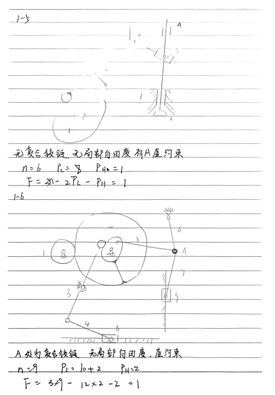 1-5
A
1
无复合铰链 无局部自由度 有A虚约束
n=6 PL=8 PH=1
F=3n-2PL-PH=1
1-6
1
3
4
A
7
9
A处有复合铰链 无局部自由度,虚约束
n=9 PL=10+2 PH=2
F=3×9-12×2-2=1